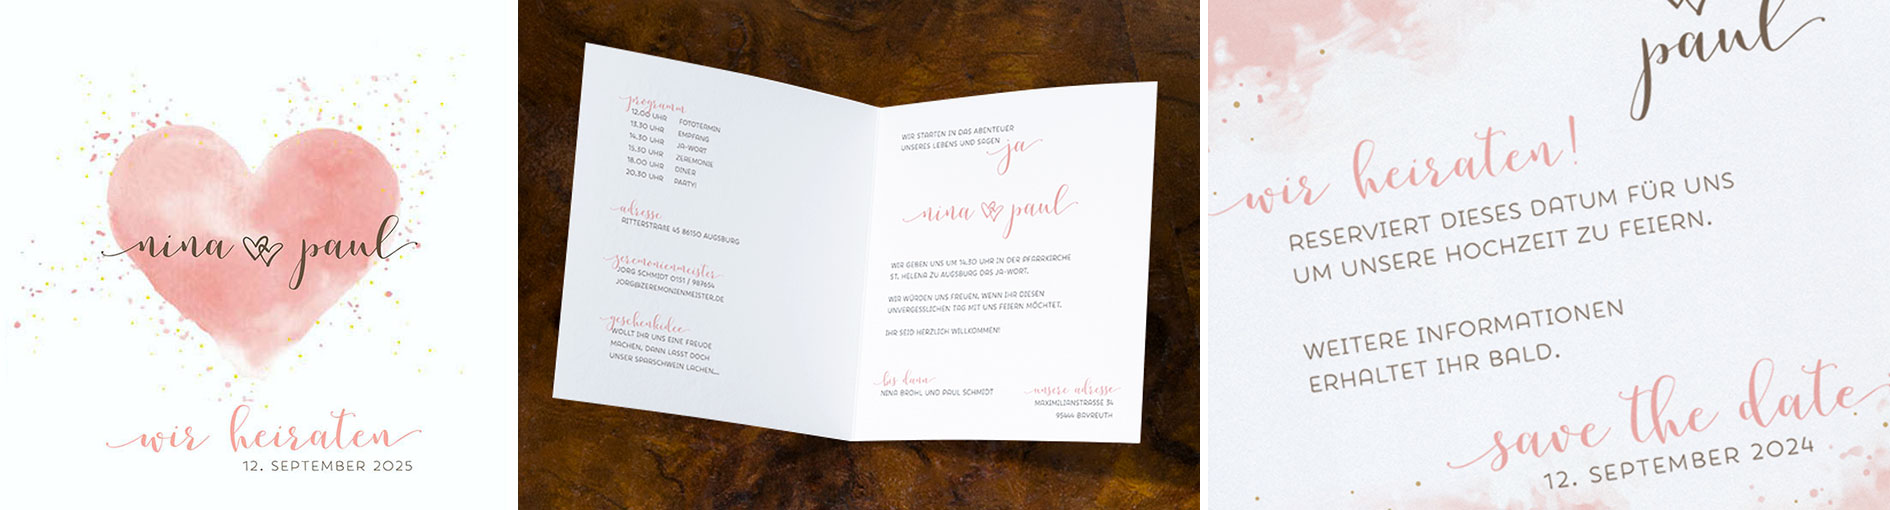 nina paul
wir heiraten
12. SEPTEMBER 2025
programm
12.00 UHR FOTOTERMIN
13.30 UHR EMPFANG
14.30 UHR JA-WORT
15.30 UHR ZEREMONIE
18.00 UHR DINER
20.30 UHR PARTY!
adresse
RITTERSTRAßE 45 86150 AUGSBURG
zeremonienmeister
JÖRG SCHMIDT 0151 / 987654
JOERG@ZEREMONIENMEISTER.DE
geschenkidee
WOLLT IHR UNS EINE FREUDE
MACHEN, DANN LASST DOCH
UNSER SPARSCHWEIN LACHEN...
WIR STARTEN IN DAS ABENTEUER
UNSERES LEBENS UND SAGEN ja
nina paul
WIR GEBEN UNS UM 14.30 UHR IN DER PFARRKIRCHE
ST. HELENA ZU AUGSBURG DAS JA-WORT.
WIR WÜRDEN UNS FREUEN, WENN IHR DIESEN
UNVERGESSLICHEN TAG MIT UNS FEIERN MÖCHTET.
IHR SEID HERZLICH WILLKOMMEN!
bis dann
NINA BROHL UND PAUL SCHMIDT
unsere adresse
MAXIMILIANSTRASSE 34
95444 BAYREUTH
paul
wir heiraten!
RESERVIERT DIESES DATUM FÜR UNS
UM UNSERE HOCHZEIT ZU FEIERN.
WEITERE INFORMATIONEN
ERHALTET IHR BALD.
save the date
12. SEPTEMBER 2024